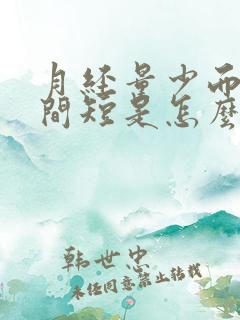 月经量少而
間短是怎麼
韩世忠
未经同意禁止转载